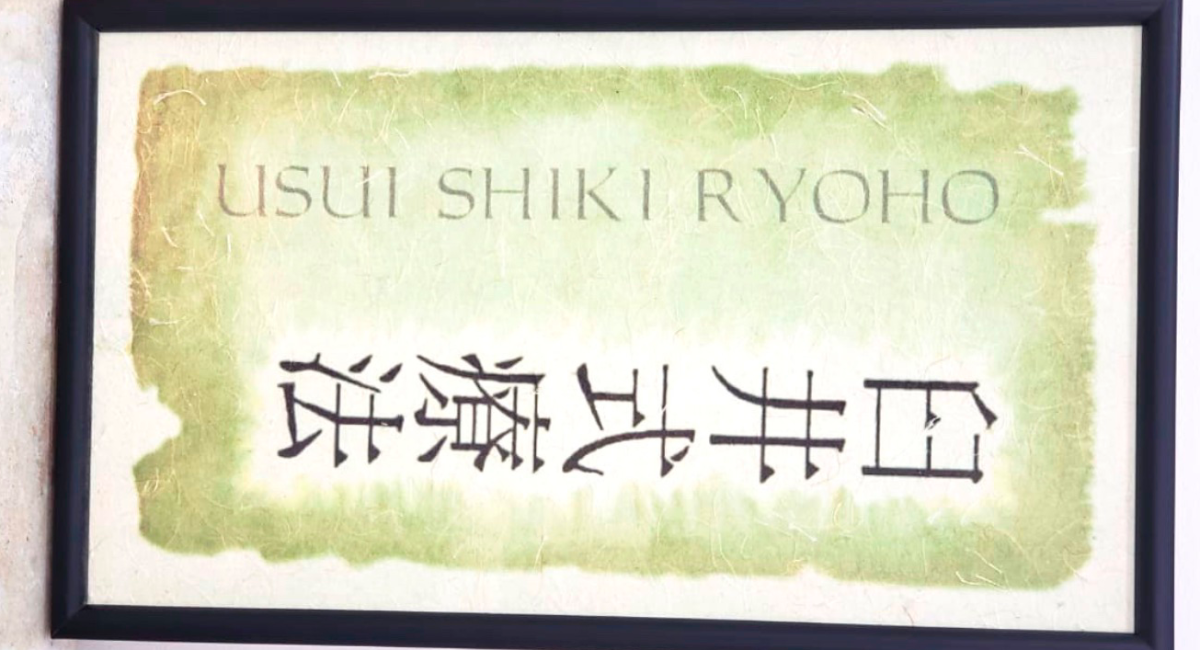 USUI SHIKI RYOHO
臼井式療法